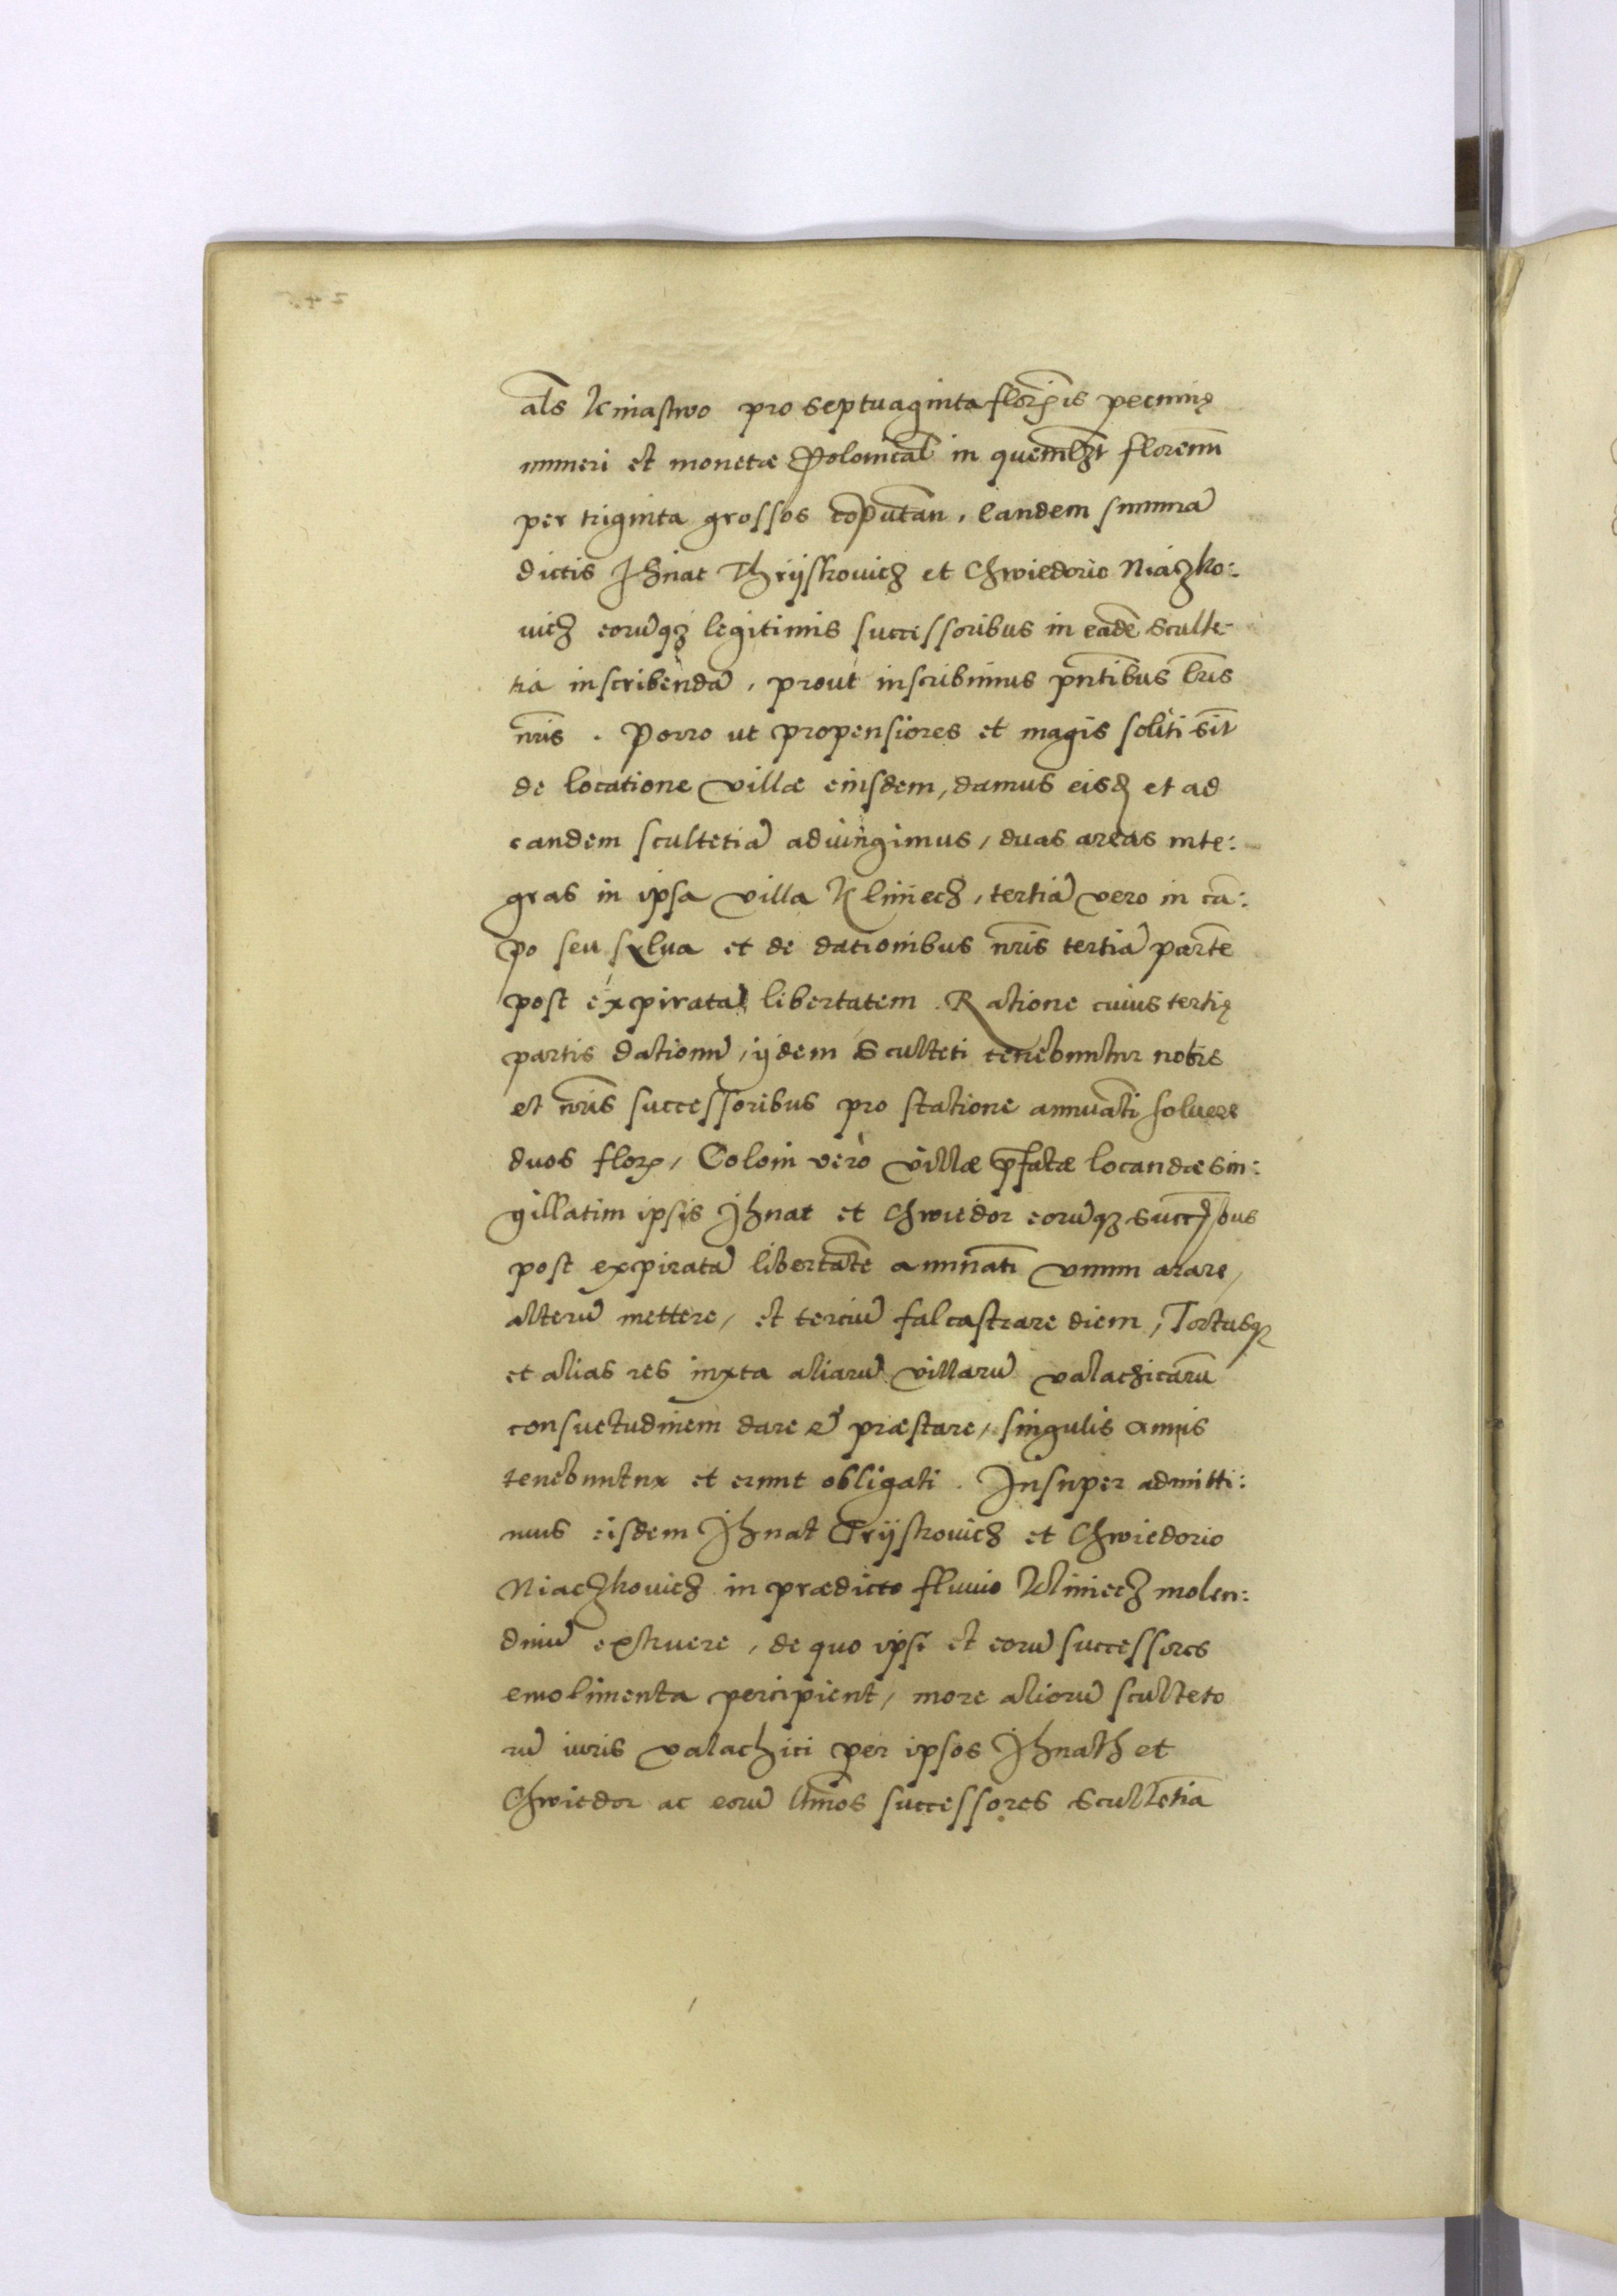 al̃s Kniastwo pro septuaginta floreñis pecunię
numeri et monetæ Polonical̃ in quemlib͞t florenũ
per triginta grossos cõputan̄. Eandem summã
dictis Jhnat Thrijskovicz et Chwiedorio Niaczko:
vicz eorũq₃ legitimis successoribus in eadẽ sculte-
tia inscribendã, prout inscribimus pñtibus lr̃is
nr̃is. Porro ut propensiores et magis soliti sĩt
de locatione villæ eiusdem, damus eisd̃ et ad
eandem scultetiã adiungimus, duas areas inte:
gras in ipsa villa Klimecz, tertiã vero in cã:
po seu sylua et de dationibus nr̃is tertiã partẽ
post expiratã libertatem. Ratione cuius tertię
partis dationũ, ijdem Sculteti tenebuntur nobis
et nr̃is successoribus pro statione annuati͞ soluere
duos flor̃, Coloni verò villæ p̃fatæ locandæ sin:
gillatim ipsis Jhnat et Chwiedor eorũq₃ success̃bus
post expiratã libertatẽ annuati͞ unum arare,
alterũ mettere, et terciũ falcastrare diem, Tortasq₃
et alias res iuxta aliarũ villarũ valachicarũ
consuetudinem dare & præstare, singulis annis
tenebuntur et erunt obligati. Insuper admitti:
mus eisdem Jhnat Trijskovicz et Chwiedorio
Niaczkovicz in prædicto fluvio Klimecz molen:
dinũ extruere, de quo ipsi et eorũ successores
emolimenta percipient, more aliorũ sculteto
rũ iuris valachici per ipsos Jhnath et
Chwiedor ac eorũ lt̃imos successores scultetia